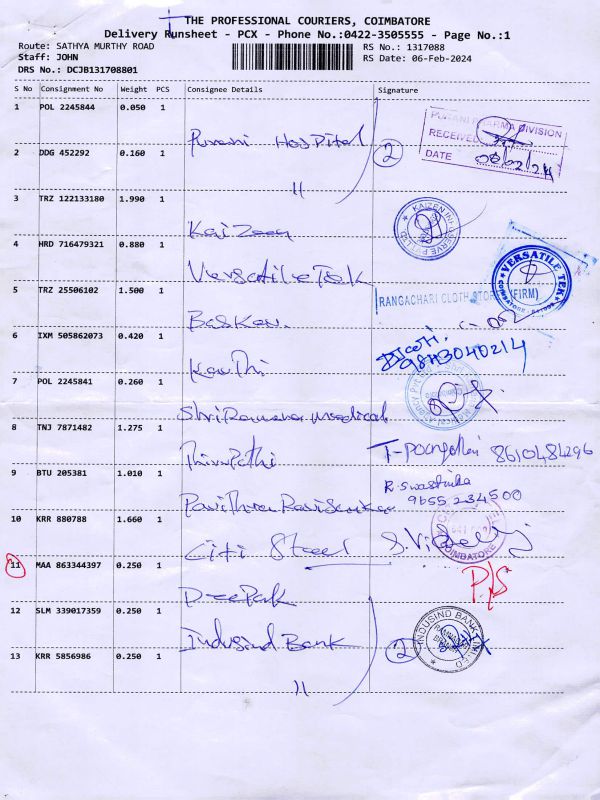 THE PROFESSIONAL COURIERS, COIMBATORE
Delivery Runsheet - PCX - Phone No.:0422-3505555 - Page No.:1
Route: SATHYA MURTHY ROAD RS No.: 1317088
Staff: JOHN RS Date: 06-Feb-2024
DRS No.: DCJB131708801
S No Consignment No Weight PCS Consignee Details Signature
1 POL 2245844 0.050 1
Purani Hospital 2
PURANI PHARMA DIVISION
RECEIVED
DATE 06/2/24
2 DDG 452292 0.160 1
"
3 TRZ 122133180 1.990 1
Kaizeen
4 HRD 716479321 0.880 1
Versatile Tek
VERSATILE TEK
COIMBATORE
5 TRZ 25506102 1.500 1
RANGACHARI CLOTH STORE (FIRM)
Baskar.
6 IXM 505862073 0.420 1
Karthi
9843040214
7 POL 2245841 0.260 1
Shri Ramana Medical
8 TNJ 7871482 1.275 1
Thirupathi 8610484296
9 BTU 205381 1.010 1
R. Swastika
9655234500
Pavithra
10 KRR 880788 1.660 1
Citi Steel
COIMBATORE
11 MAA 863344397 0.250 1
P/S
Deepak
12 SLM 339017359 0.250 1
Indusind Bank 2
INDUSIND BANK LIMITED
13 KRR 5856986 0.250 1
"